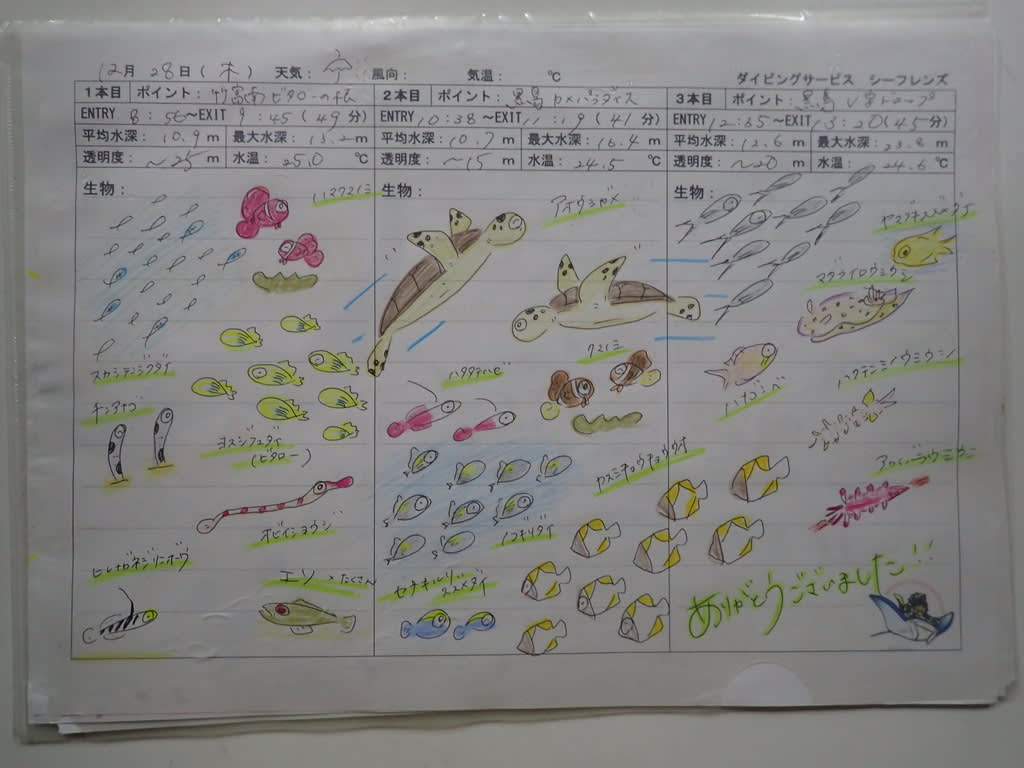 12月 28日(木) 天気: 風向: 気温: ℃
ダイビングサービス シーフレンズ
1本目 ポイント: 竹富南ビタローの根
ENTRY 8:56~EXIT 9:45(49分)
平均水深: 10.9 m 最大水深: 13.2 m
透明度: ~25 m 水温: 25.0 ℃
生物:
ハマクマノミ
スカシテンジクダイ
チンアナゴ
ヨスジフエダイ
(ビタロー)
オビイシヨウジ
ヒレナガネジリンボウ
エソ たくさん
2本目 ポイント: 黒島カメパラダイス
ENTRY 10:38~EXIT 11:19(41分)
平均水深: 10.7 m 最大水深: 16.4 m
透明度: ~15 m 水温: 24.5 ℃
生物:
アオウミガメ
クマノミ
ハタタテハゼ
カスミチョウチョウウオ
ノコギリダイ
セナキルリスズメダイ
3本目 ポイント: 黒島 V字ドロップ
ENTRY 12:35~EXIT 13:20(45分)
平均水深: 12.6 m 最大水深: 23.8 m
透明度: ~20 m 水温: 24.6 ℃
生物:
マダライロウミウシ
ハナゴンベ
ありがとうございました!!